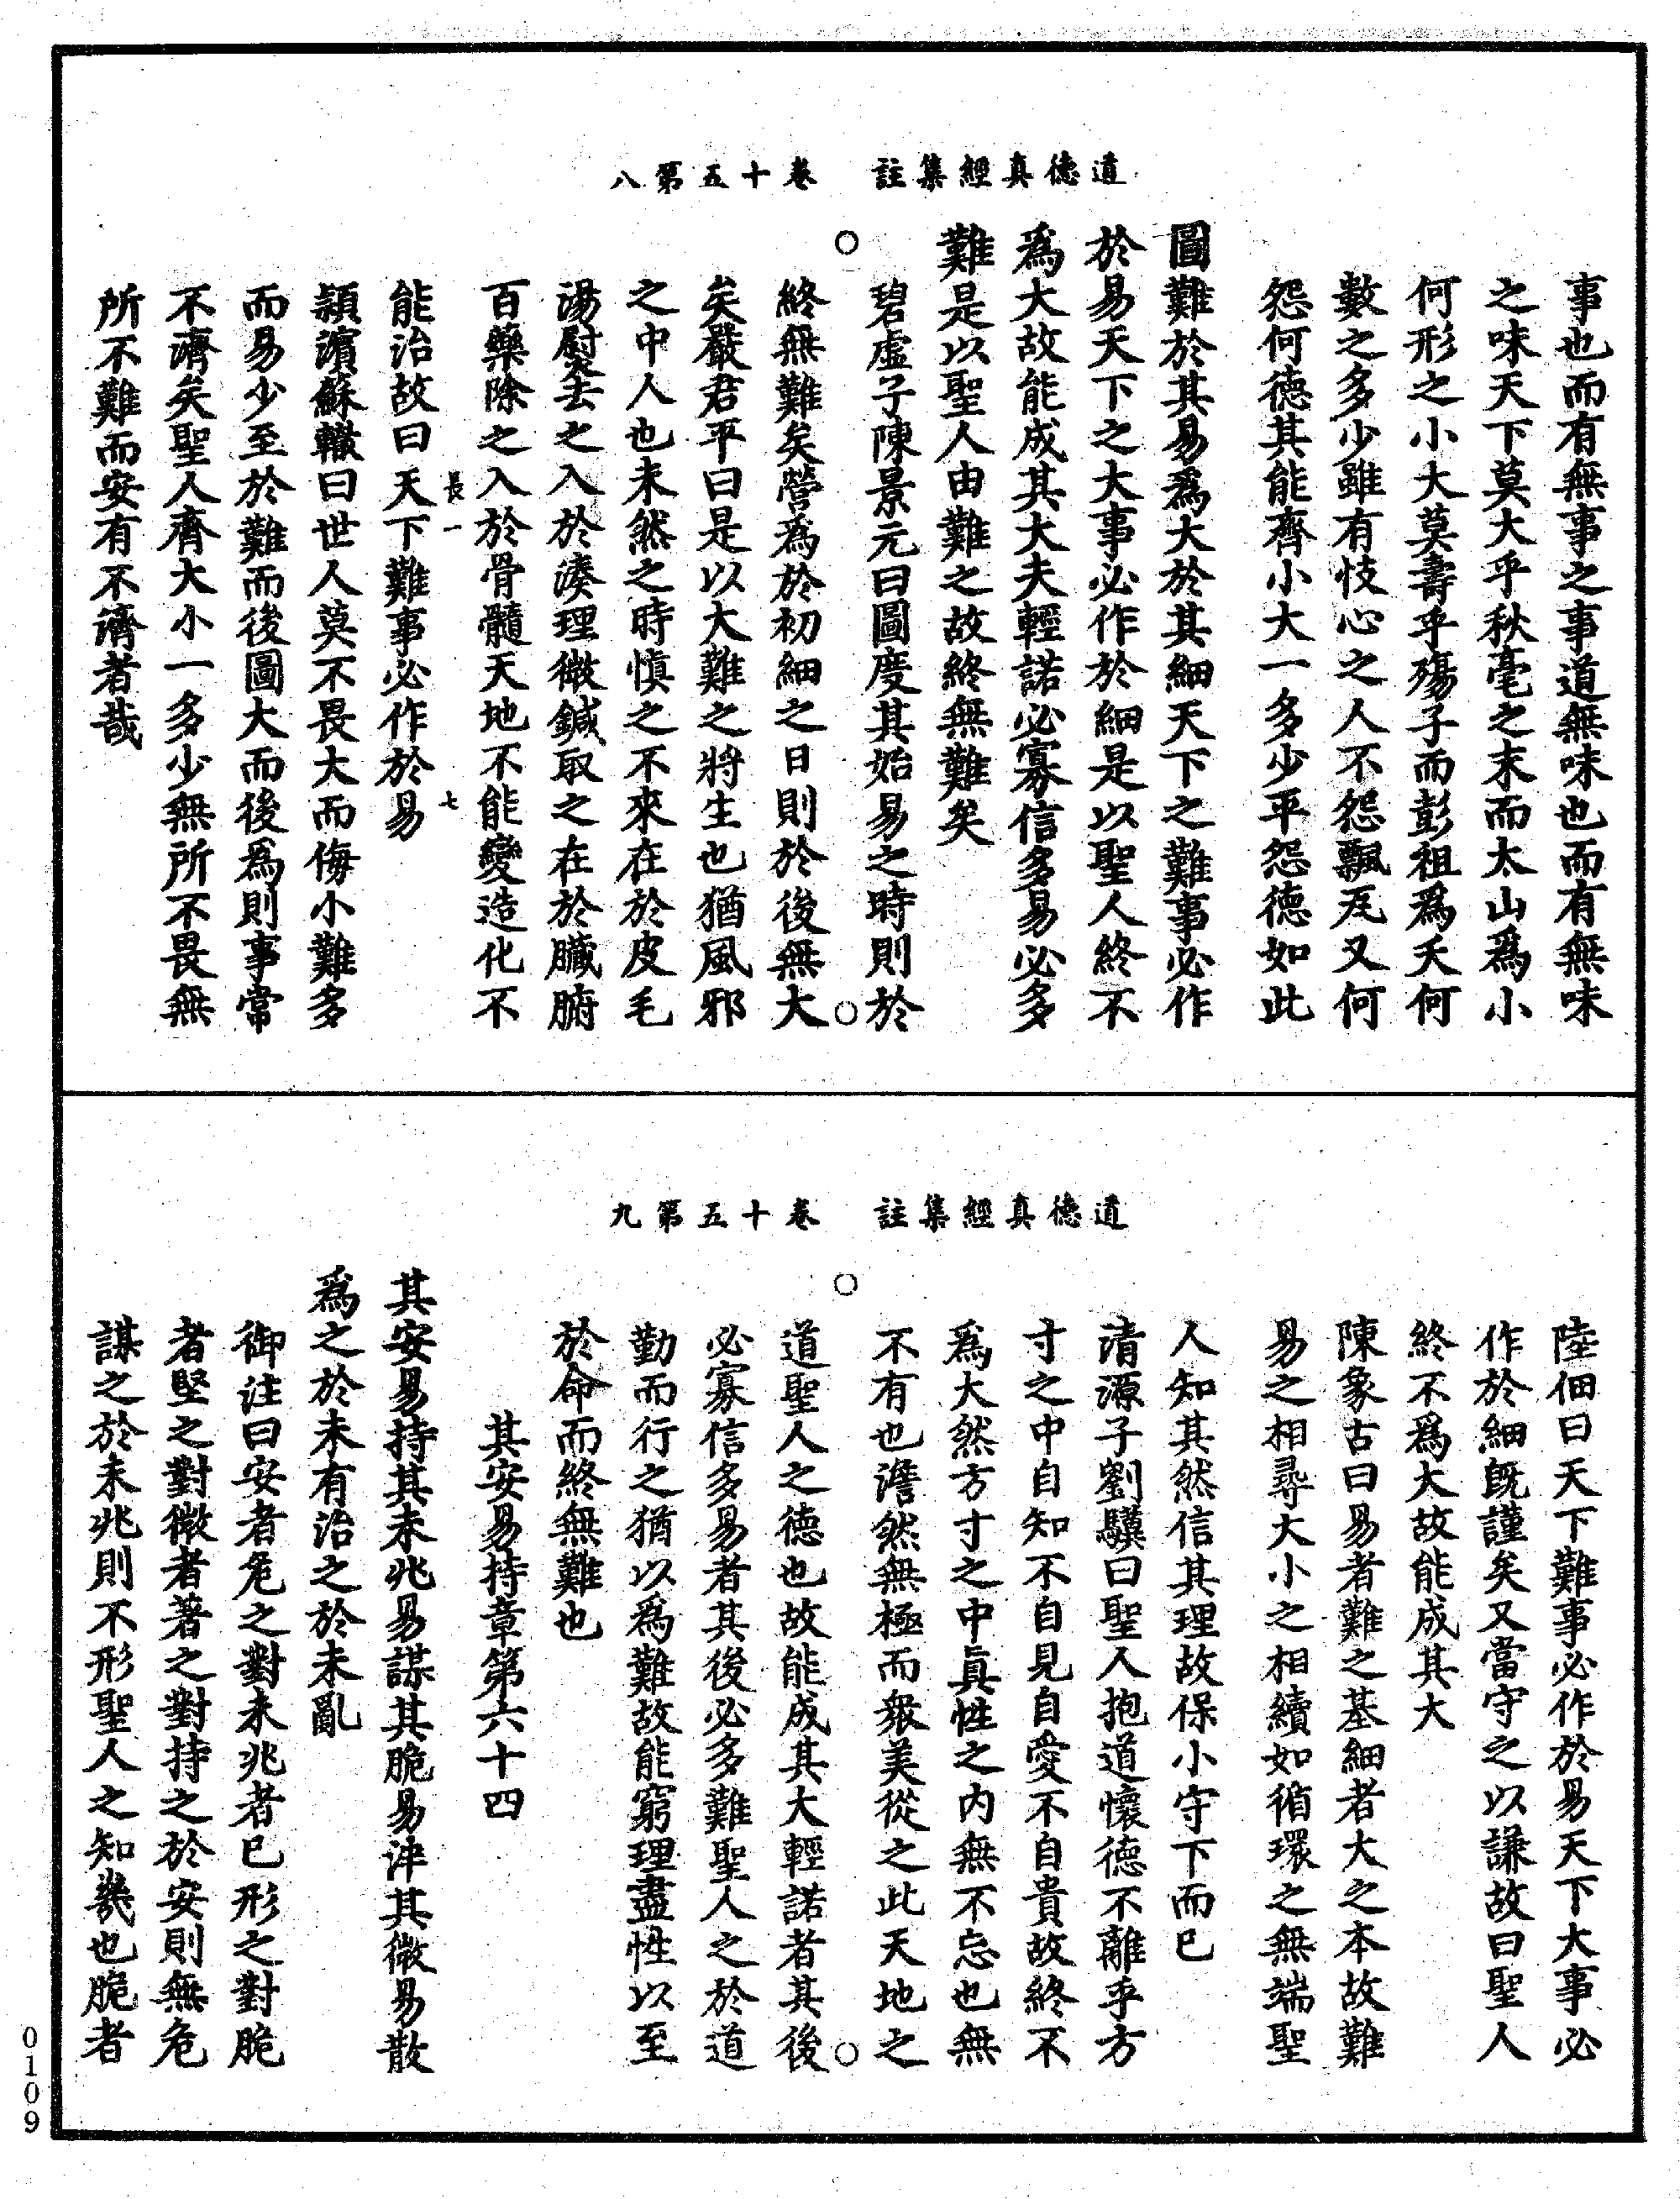 道德真經集註　卷十五第八
事也而有無事之事道無味也而有無味
之味天下莫大乎秋毫之末而太山爲小
何形之小大莫壽乎殤子而彭祖爲夭何
數之多少雖有忮心之人不怨飄瓦又何
怨何德其能齊小大一多少平怨德如此
圖難於其易爲大於其細天下之難事必作
於易天下之大事必作於細是以聖人終不
爲大故能成其大夫輕諾必寡信多易必多
難是以聖人由難之故終無難矣
碧虛子陳景元曰圖度其始易之時則於
終無難矣營爲於初細之日則於後無大
矣嚴君平曰是以大難之將生也猶風邪
之中人也未然之時慎之不來在於皮毛
湯熨去之入於湊理微鍼取之在於臟腑
百藥除之入於骨髓天地不能變造化不
長一　七
能治故曰天下難事必作於易
潁濱蘇轍曰世人莫不畏大而侮小難多
而易少至於難而後圖大而後爲則事常
不濟矣聖人齊大小一多少無所不畏無
所不難而安有不濟者哉
道德真經集註　卷十五第九
陸佃曰天下難事必作於易天下大事必
作於細既謹矣又當守之以謙故曰聖人
終不爲大故能成其大
陳象古曰易者難之基細者大之本故難
易之相尋大小之相續如循環之無端聖
人知其然信其理故保小守下而已
清源子劉驥曰聖人抱道懷德不離乎方
寸之中自知不自見自愛不自貴故終不
爲大然方寸之中真性之内無不忘也無
不有也澹然無極而衆美從之此天地之
道聖人之德也故能成其大輕諾者其後
必寡信多易者其後必多難聖人之於道
勤而行之猶以爲難故能窮理盡性以至
於命而終無難也
其安易持章第六十四
其安易持其未兆易謀其脆易泮其微易散
爲之於未有治之於未亂
御注曰安者危之對未兆者已形之對脆
者堅之對微者著之對持之於安則無危
謀之於未兆則不形聖人之知幾也脆者
0109